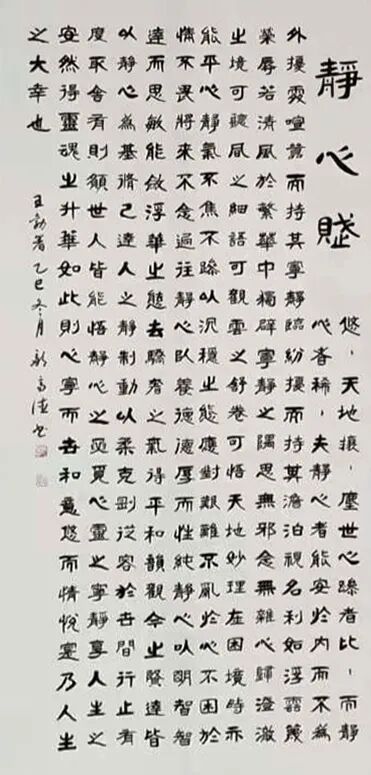 靜心賦
悠〻天地攘〻塵世心躁者比〻而靜
心者稀〻夫靜心者能安於內而不為
外擾處喧囂而持其寧靜臨紛擾而持其澹泊視名利如浮雲蔑
榮辱若清風於繁華中獨辟寧靜之隅思無邪念無雜心歸澄澈
之境可聽風之細語可觀雲之舒卷可悟天地妙理在困境時亦
能平心靜氣不焦不躁以沉穩之態應對艱難不亂於心不困於
情不畏將來不念過往靜心以養德德厚而性純靜心以明智智
達而思敏能斂浮華之態去驕奢之氣得平和韻觀今之賢達皆
以靜心為基修己達人之靜制動以柔克剛從容於世間行止有
度取舍有則願世人皆能悟靜心之奧覓心靈之寧靜享人生之
安然得靈魂之升華如此則心寧而世和意悠而情悅實乃人生
之大幸也
乙巳冬月